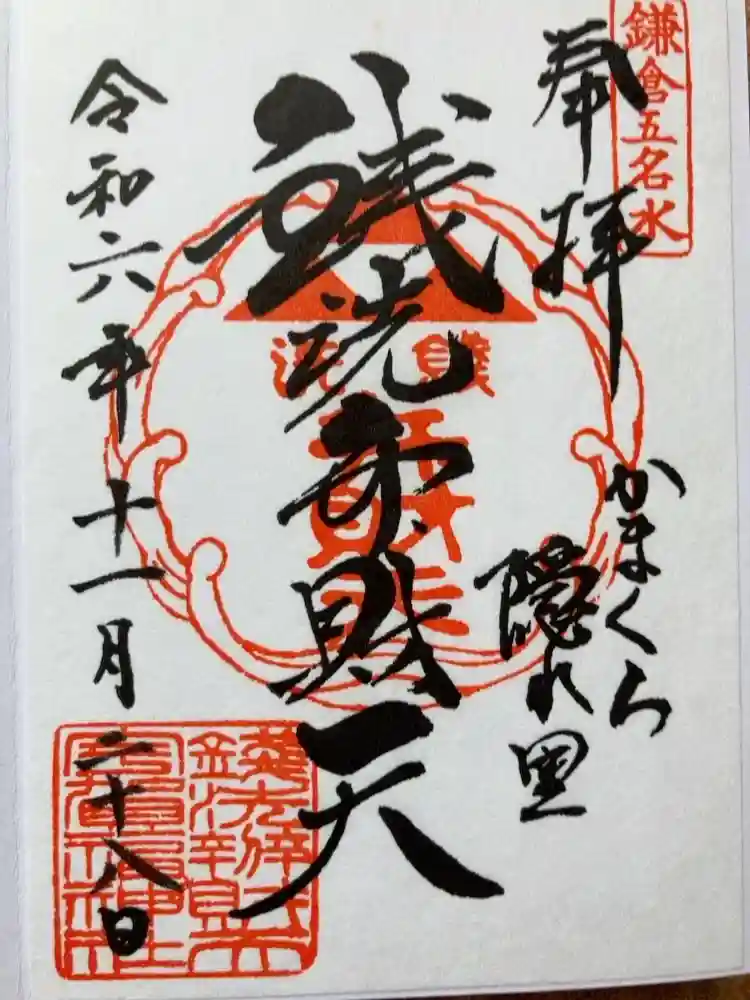 鎌倉五名水
奉拝
かまくら
隠れ里
銭洗弁財天
令和六年十一月二十八日